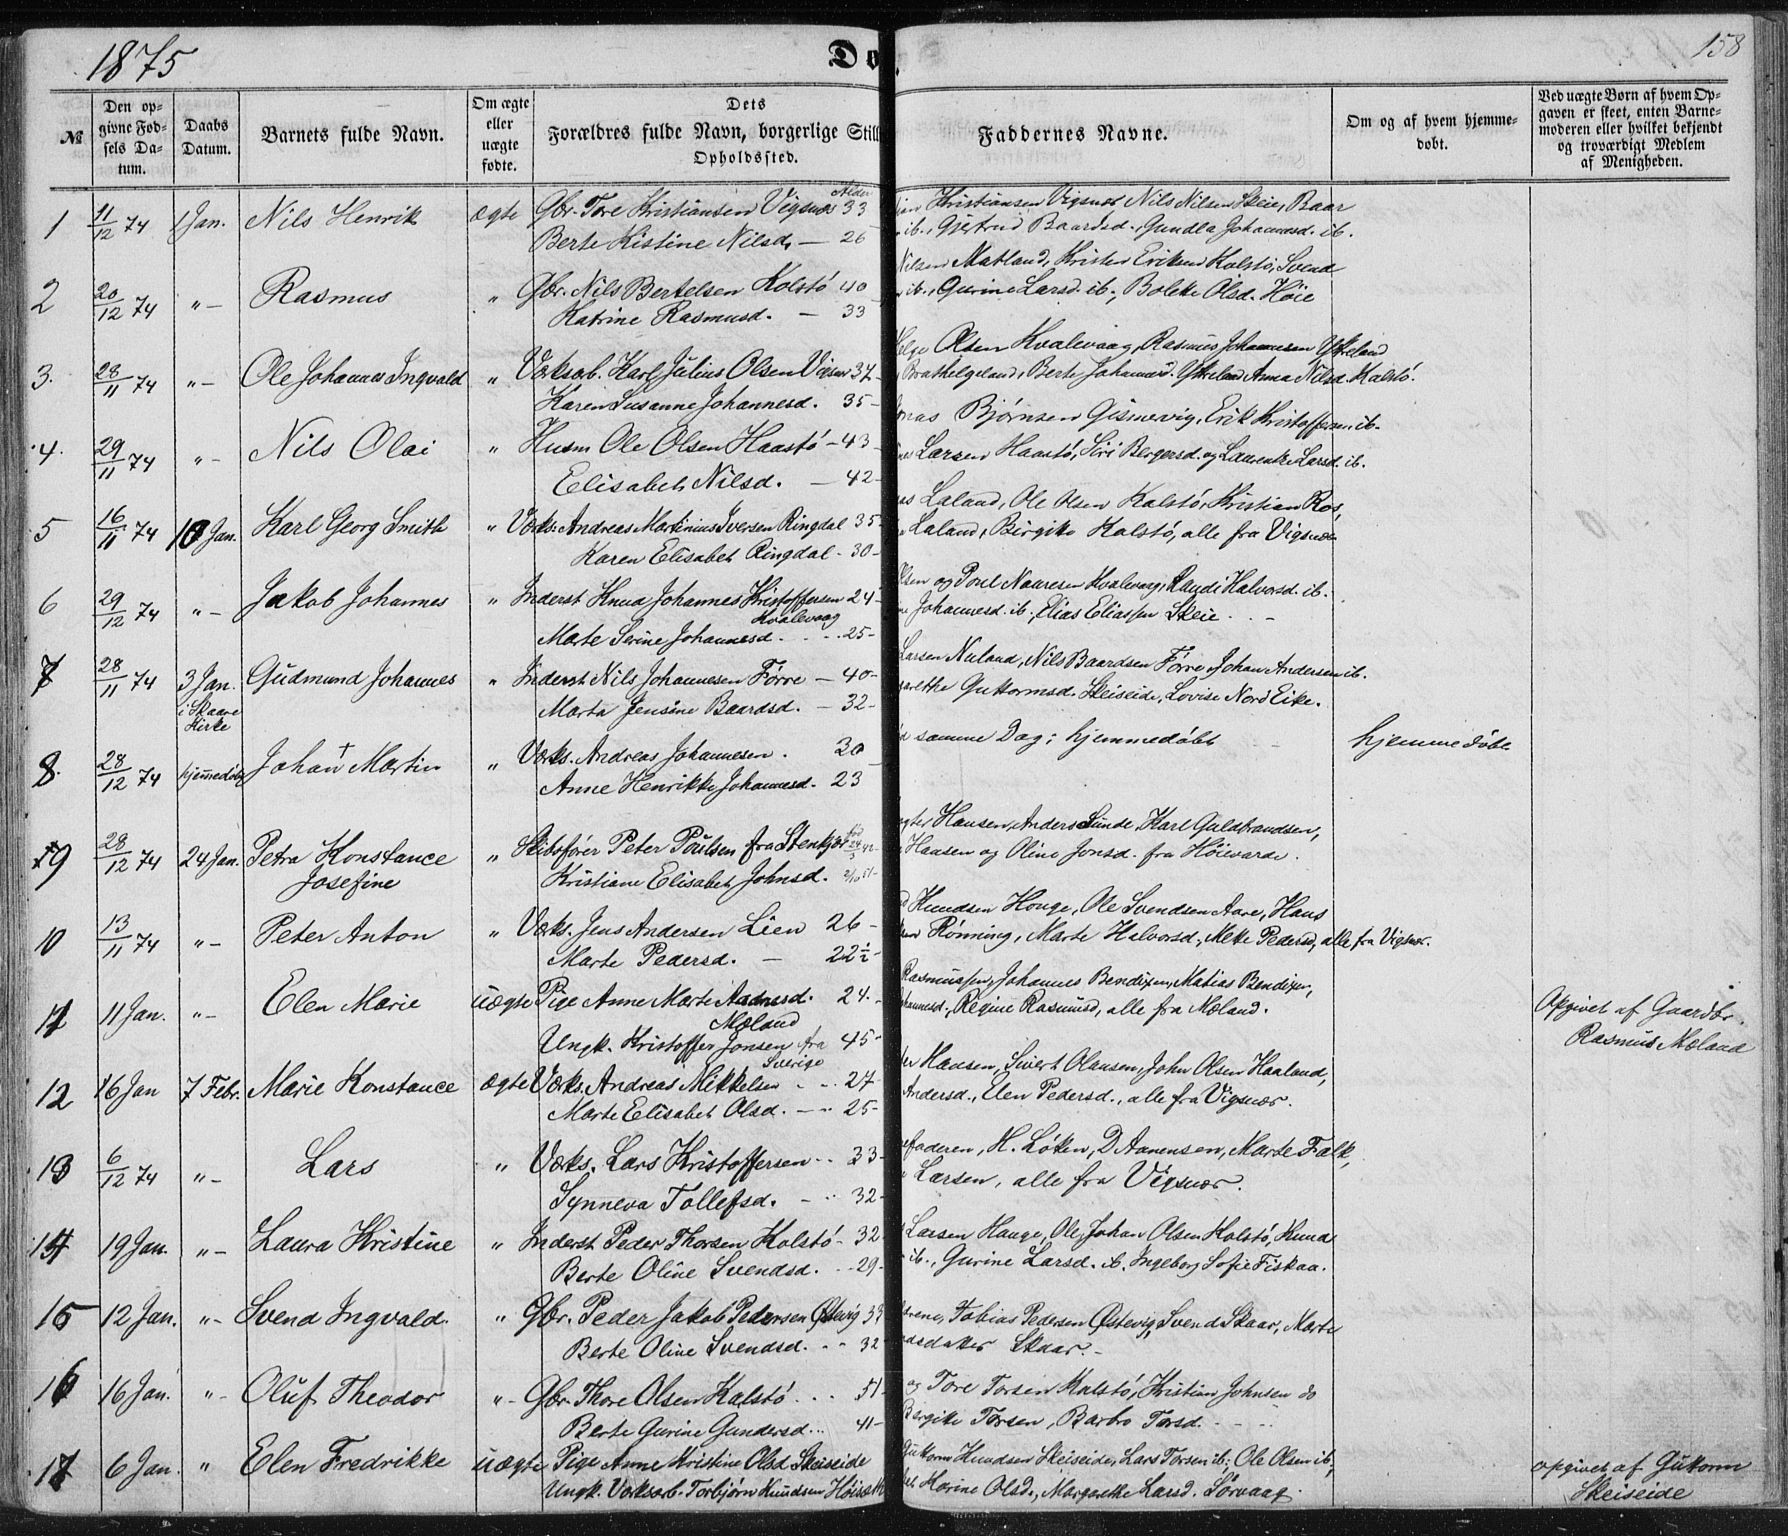 1875
Do
158
№
Den op-
givne Fød-
sels Da-
tum.
Daabs
Datum.
Barnets fulde Navn.
Om ægte
eller
uægte
fødte.
Dets
Forældres fulde Navn, borgerlige Still
Opholdssted.
Faddernes Navne.
Om og af hvem hjemme-
døbt.
Ved uægte Børn af hvem Op-
gaven er skeet, enten Barne-
moderen eller hvilket bekjendt
og troværdigt Medlem
af Menigheden.
Alder
1 11/12 74 1 Jan. Nils Henrik ægte Gbr. Tore Kristiansen Vigsnæs 33 Kristiansen Vigsnæs Nils Nilsen Skeie, Baar
Berte Kistine Nilsd. — 26 ib., Gjertrud Baardsd., Gundla Johannesd. ib.
2 20/12 74 "- Rasmus " Gbr. Nils Bertelsen Kolstö 40 Nilsen Matland, Krister Eriksen Kalstö, Svend
Katrine Rasmusd. — 33 ib., Gurine Larsd. ib., Bolette Olsd. Höie
3. 28/11 74 "- Ole Johannes Ingvald " Værksab. Karl Julius Olsen Vigsnæs 37 Helge Olsen Kvalevaag, Rasmus Johannesen Ytreland
Karen Susanne Johannesd. 35- Brathelgeland, Berte Johannesd. Ytreland Anna Nilsd. Kalstö.
4. 29/11 74 "- Nils Olai " Husm Ole Olsen Haastö - 43 Jonas Björnsen Gismervig, Erik Kristoffersen ib.
Elisabet Nilsd. — 42- Larsen Haastö, Siri Bergersd. og Laurentze Larsd. ib.
5 16/11 74 10 Jan. Karl Georg Smith " Værks. Andreas Martinius Iversen Ringdal 35- Laland, Ole Olsen Kalstö, Kristian Ros,
Karen Elisabet Ringdal - 30- Laland, Birgitte Kalstö, alle fra Vigsnæs
6 29/12 74 "- Jakob Johannes " Inderst Knud Johannes Kristoffersen 24- Olsen og Poul Nauresen Kvalevaag, Randi Halvorsd. ib.
Kvalevaag
Marte Serine Johannesd. . . . 25- Johannesd. ib., Elias Eliassen Skeie . . -
7 28/11 74 3 Jan. Gudmund Johannes " Inderst Nils Johannesen Förre — 40- Larsen Nuland, Nils Baardsen Förre, Johan Andersen ib.
i Skaare
Kirke
Marta Jensine Baardsd. — 32- Guttormsd. Skeiseide, Lovise Nord Eike.
8. 28/12 74 hjemmedöbt Johan Martin " Værks. Andreas Johannesen . 30 samme Dag; hjemmedöbt hjemmedöbt
Anne Henrikke Johannesd. 23
9 28/12 74 24 Jan. Petra Konstance " Skibsförer Peter Poulsen fra Stenkjær Hansen, Anders Sunde, Karl Guldbrandsen,
Josefine Kristiane Elisabet Johnsd. Hansen og Oline Jonsd. fra Höievarde.
10 13/11 74 "- Peter Anton " Værks. Jens Andersen Lien 26 - Knudsen Houge, Ole Svendsen Aare, Hans
Marte Pedersd. — 22½- Rönning, Marte Halvorsd., Mette Pedersd, alle fra Vigsnæs.
11 11 Jan. "- Elen Marie uægte Pige Anne Marte Aadnesd. 24.- Rasmussen, Johannes Bendixen, Matias Bendixen,
Mæland
Ungk. Kristoffer Jonsen fra 45- Johannesd., Regine Rasmusd, alle fra Mæland. Opgivet af Gaardbr.
Sverige
Rasmus Mæland
12 16 Jan 7 Febr. Marie Konstance ægte Værks. Andreas Mikkelsen . . . 27- Hansen, Sivert Olausen, John Olsen Haaland,
Marte Elisabet Olsd. — .. 25- Andersd., Elen Pedersd., alle fra Vigsnæs.
13 6/12 74 "- Lars " Værks. Lars Kristoffersen .. 33- faderen, H. Löken, D Aanensen, Marte Falk,
Synneva Tollefsd. - .. 32- Larsen, alle fra Vigsnæs.
14 19 Jan. "- Laura Kristine " Inderst Peder Thorsen Kolstö - 32 Larsen Hauge, Ole Johan Olsen Kolstö, Knud
Berte Oline Svendsd. . 29- ib., Gurine Larsd. ib. Ingeborg Sofie Fiskaa.
15 12 Jan. "- Svend Ingvald. " Gbr. Peder Jakob Pedersen Østevig 33 Tobias Pedersen Østevig, Svend Skaar, Marte
Berte Oline Svendsd. . . 32 datter Skaar.-
16 16 Jan. "- Oluf Theodor "- Gbr. Thore Olsen Kalstö . . 51- og Tore Torsen Kalstö, Kristian Johnsen do
Berte Gurine Gundersd... 41- Bergitte Torsen, Barbro Torsd. . - . .
17 6 Jan. " Elen Fredrikke uægte Pige Anne Kristine Olsd. Skeiseide Guttorm Knudsen Skeiseide, Lars Torsen ib., Ole Olsen ib., opgivet af Gutorm
Ungk. Værksarb. Torbjörn Knudsen Karine Olsd., Margrethe Larsd. Sörvaag. Skeiseide